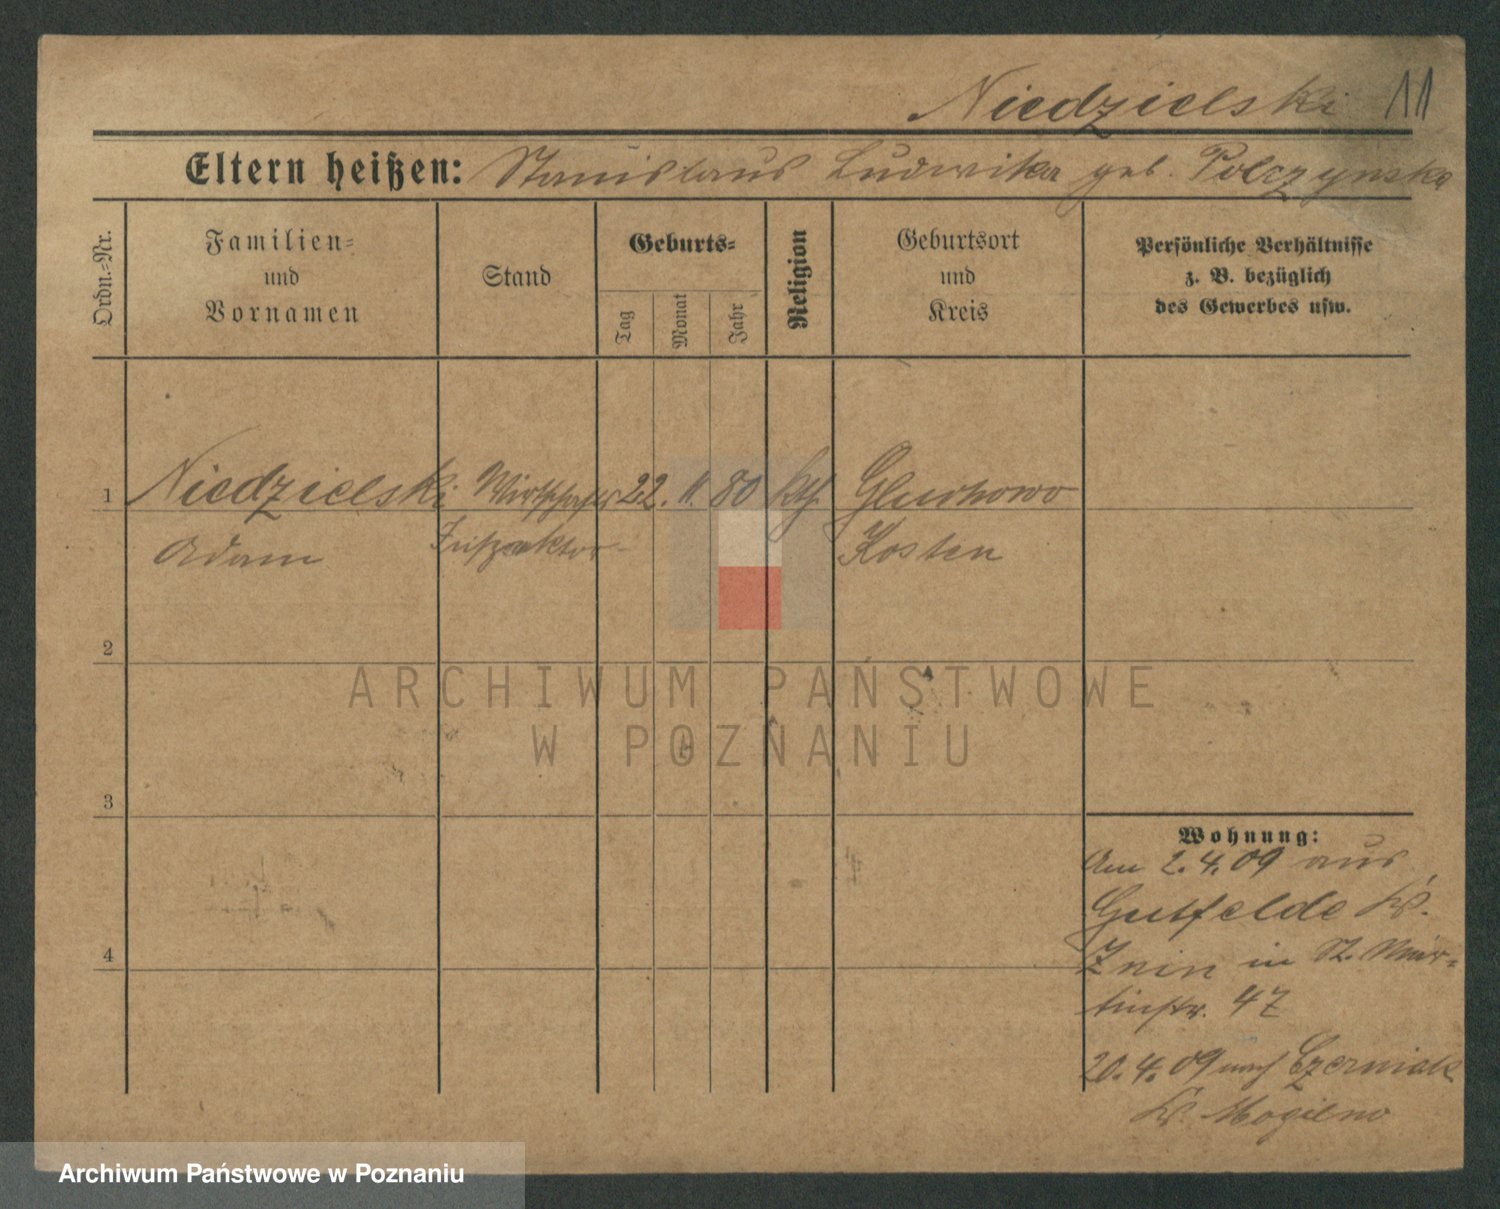 Niedzielski 11
Eltern heißen: Stanislaus Ludwika geb. Polczynska
Ordn.=Nr.
Familien=
und
Vornamen
Stand
Geburts=
Tag
Monat
Jahr
Religion
Geburtsort
und
Kreis
Persönliche Verhältnisse
z. B. bezüglich
des Gewerbes usw.
1 Niedzielski Wirtschafts 22. 11. 80 kth. Gluchowo
Adam Kosten
2
ARCHIWUM PAŃSTWOWE
W POZNANIU
3
Wohnung:
Am 2.4.09 aus
Gutfelde Kr.
Znin in St. Mar=
tinstr. 47
4
20.4.09 nach Czerniak
Kr. Mogilno
Archiwum Państwowe w Poznaniu